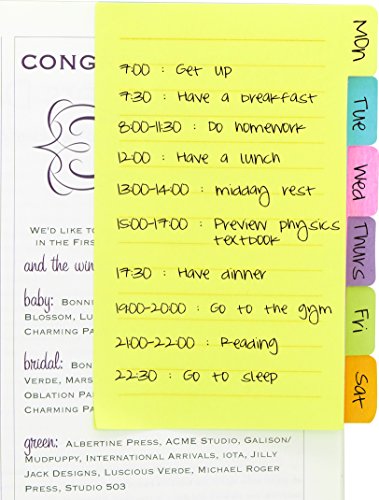 CONG
7:00 : Get up
7:30 : Have a breakfast
8:00-11:30 : Do homework
12:00 : Have a lunch
13:00-14:00 : midday rest
15:00-17:00 : Preview physics
textbook
17:30 : Have dinner
19:00-20:00 : Go to the gym
21:00-22:00 : Reading
22:30 : Go to sleep
Mon
Tue
Wed
Thurs
Fri
Sat
WE'D LIKE T
IN THE FIRS
and the win
baby: BONNI
BLOSSOM, LU
CHARMING PA
bridal: BON
VERDE, MARS
OBLATION PA
CHARMING PA
green: ALBERTINE PRESS, ACME STUDIO, GALISON/
MUDPUPPY, INTERNATIONAL ARRIVALS, IOTA, JILLY
JACK DESIGNS, LUSCIOUS VERDE, MICHAEL ROGER
PRESS, STUDIO 503